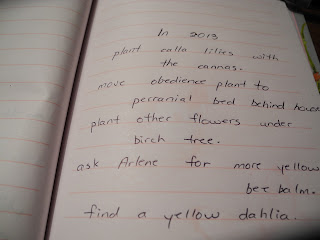 In 2013
plant calla lilies with
the cannas.
move obedience plant to
perranial bed behind house
plant other flowers under
birch tree.
ask Arlene for more yellow
bee balm.
find a yellow dahlia.